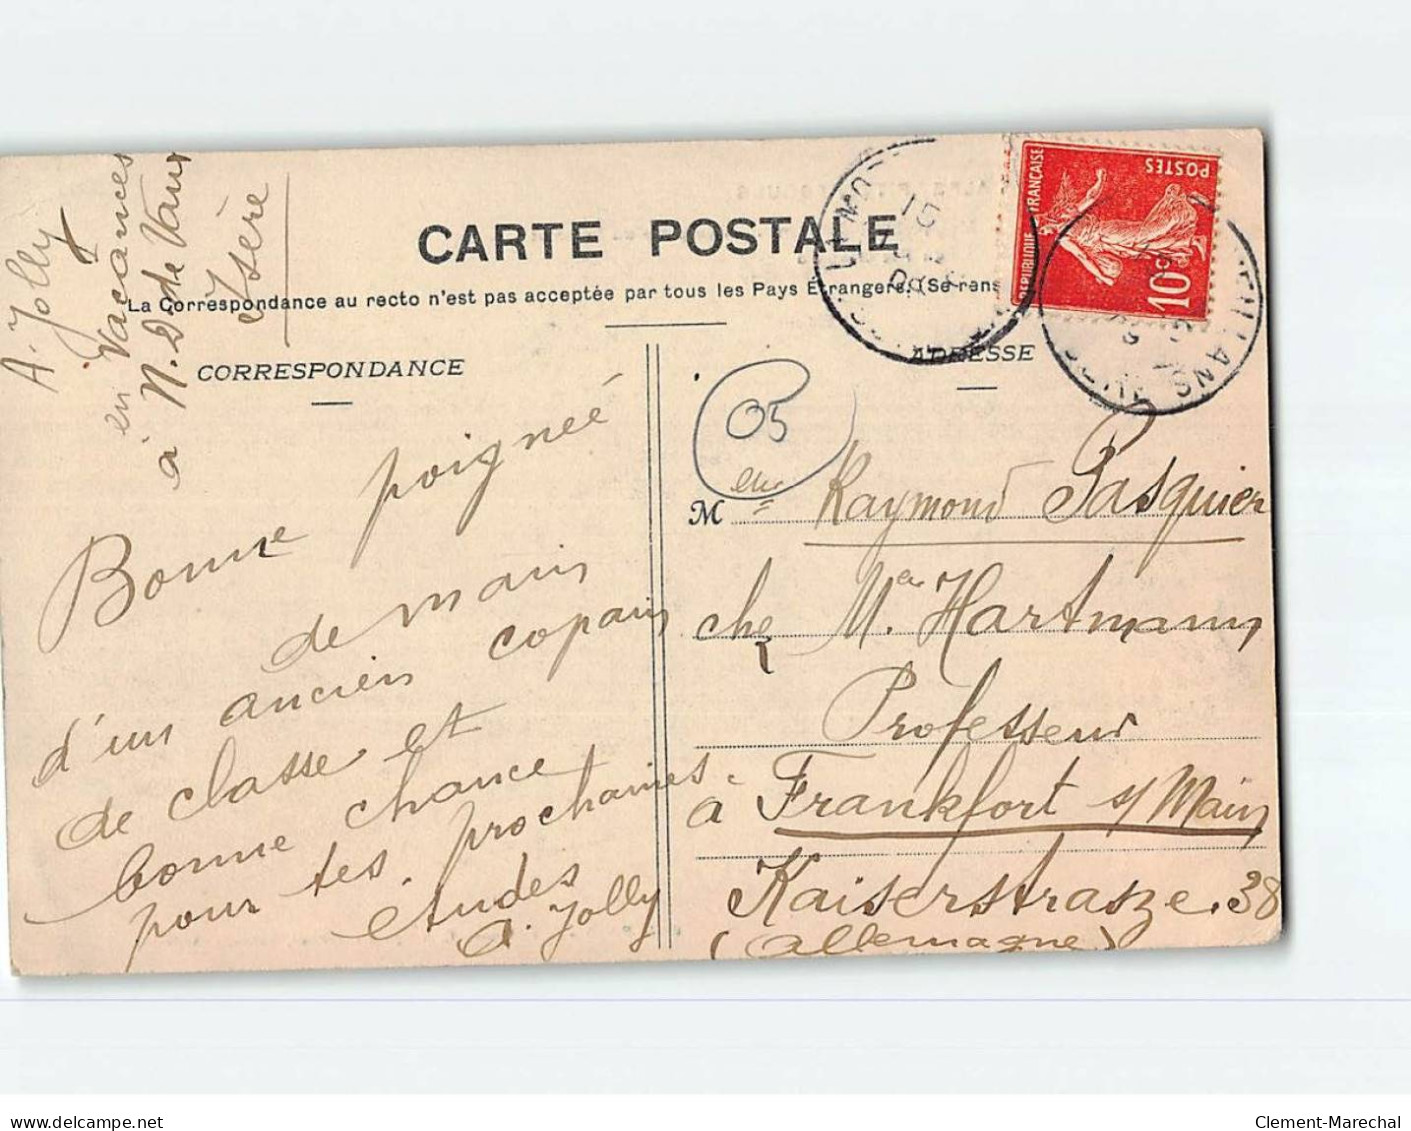 A. Jolly
en Vacances
à N. D de Vaux
Isère
CARTE POSTALE
La Correspondance au recto n'est pas acceptée par tous les Pays Étrangers. (Se rens
CORRESPONDANCE
ADRESSE
REPUBLIQUE FRANÇAISE
POSTES
10c
05
Bonne poignée
de main
d'un ancien copain
de classe et
bonne chance
pour tes prochaines
études
A. Jolly
M Raymond Pasquier
chez Mr Hartmann
Professeur
à Frankfort s/ Main
Kaiserstrasze. 38
(Allemagne)
delcampe.net
Clement-Marechal